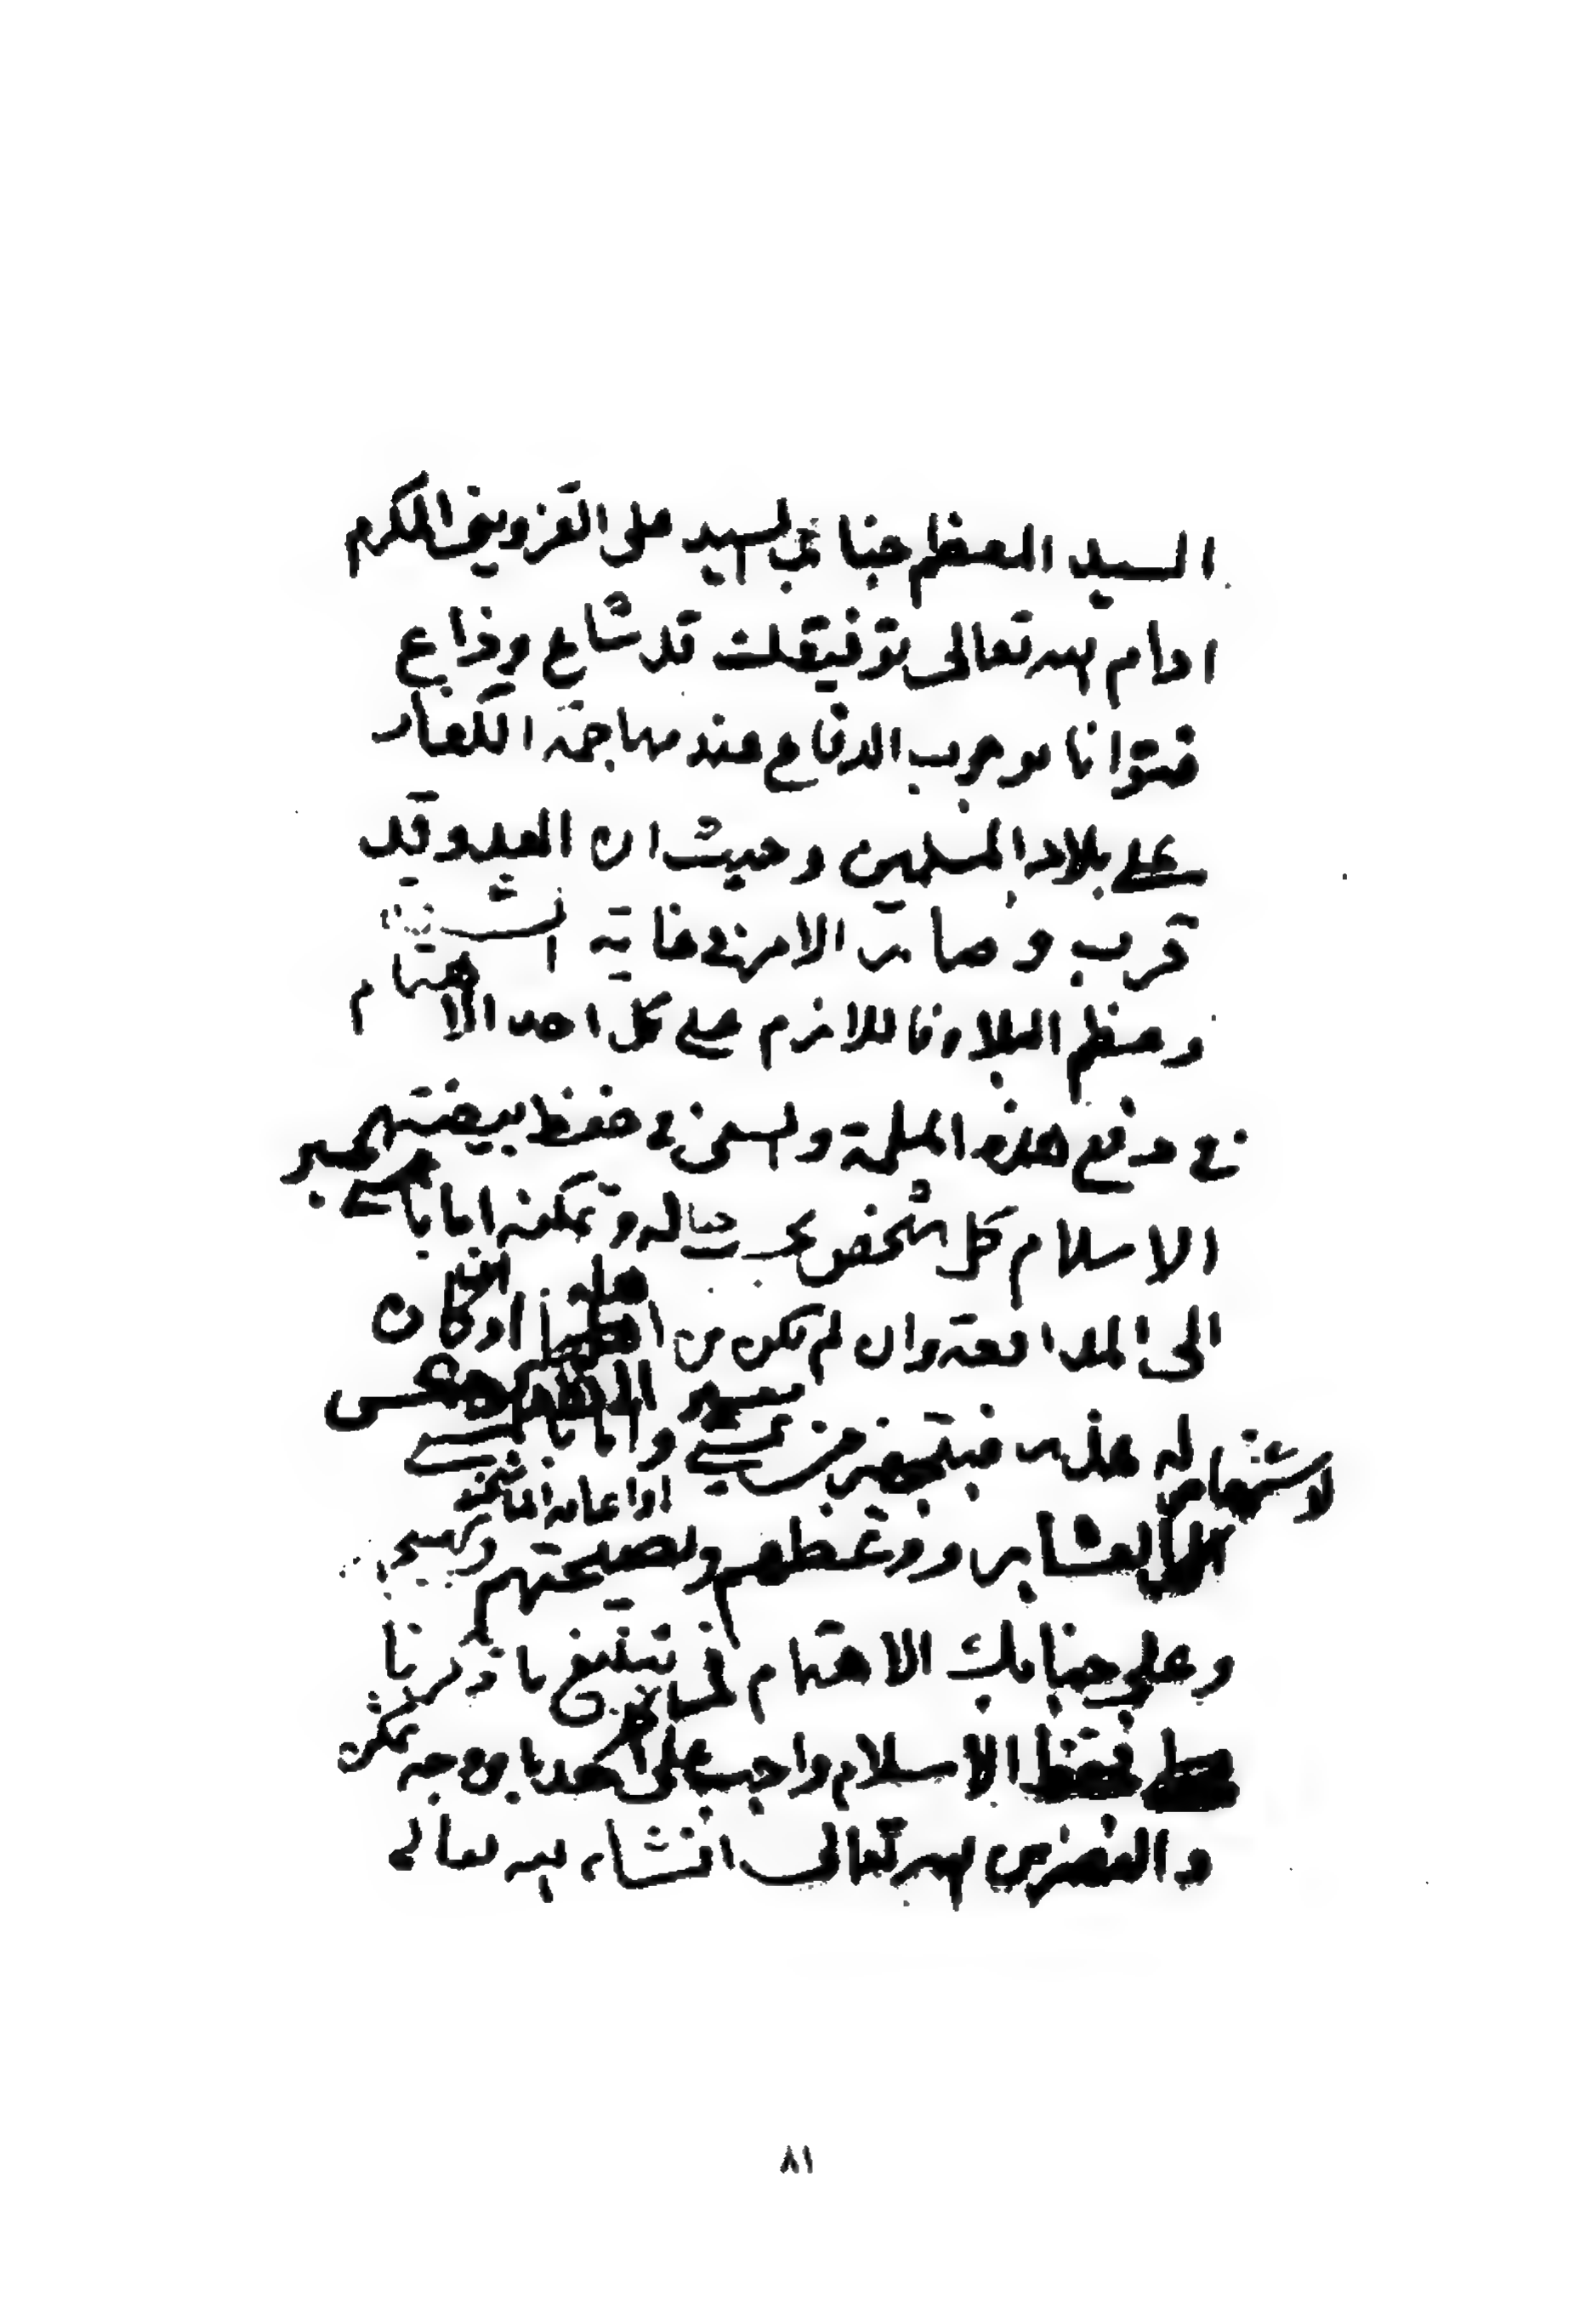 السيد المعظم جناب السيد علي القزويني المكرم
ادام الله تعالى توفيقك قد شاع وذاع
فتوانا بوجوب الدفاع عند مهاجمة الكفار
على بلاد المسلمين وحيث ان العدو قد
قرب وصار الامر في غاية الشدة
وعظم البلاء فاللازم على كل احد الاهتمام
في دفع هذه الملمة والسعي في حفظ بيضة
الاسلام كل شخص بحسب حاله وتمكنه اما
الى المدافعة وان لم يكن من او كان
له عذر فبتجهيز غيره واما
العشاير ووعظهم ونصيحتهم
وعلى جنابك الاهتمام في تبليغ ما ذكرنا
فحفظ الاسلام واجب على بأي وجه تمكن
والنصر من الله تعالى انشاء الله تعالى
٨١